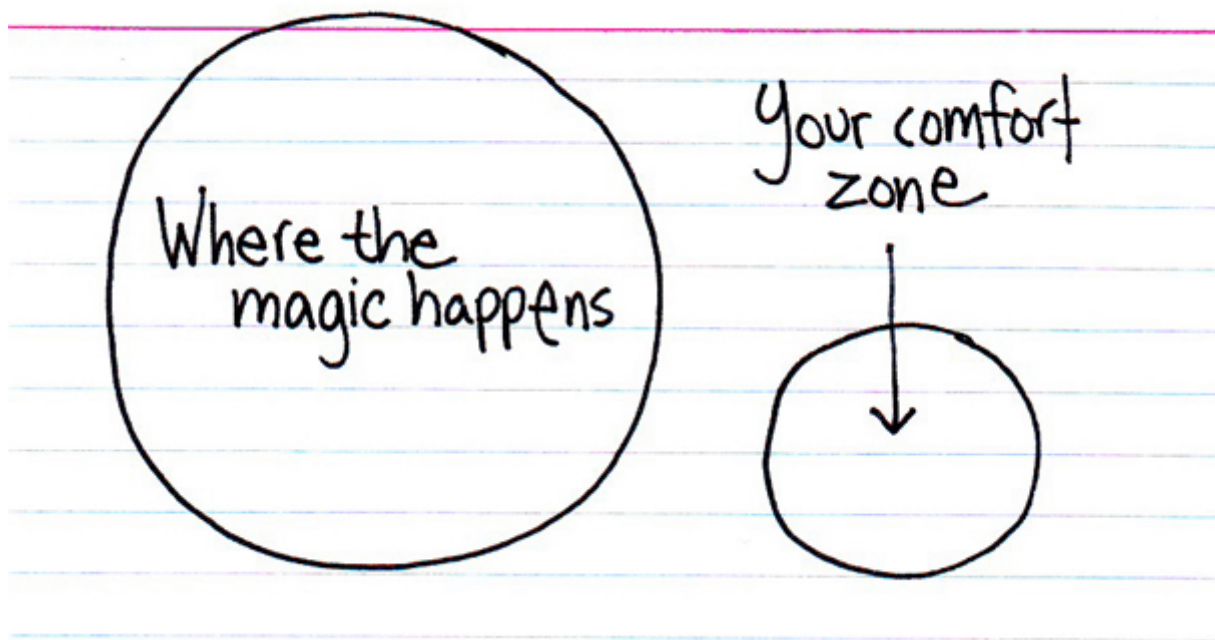 Where the
magic happens
Your comfort
zone